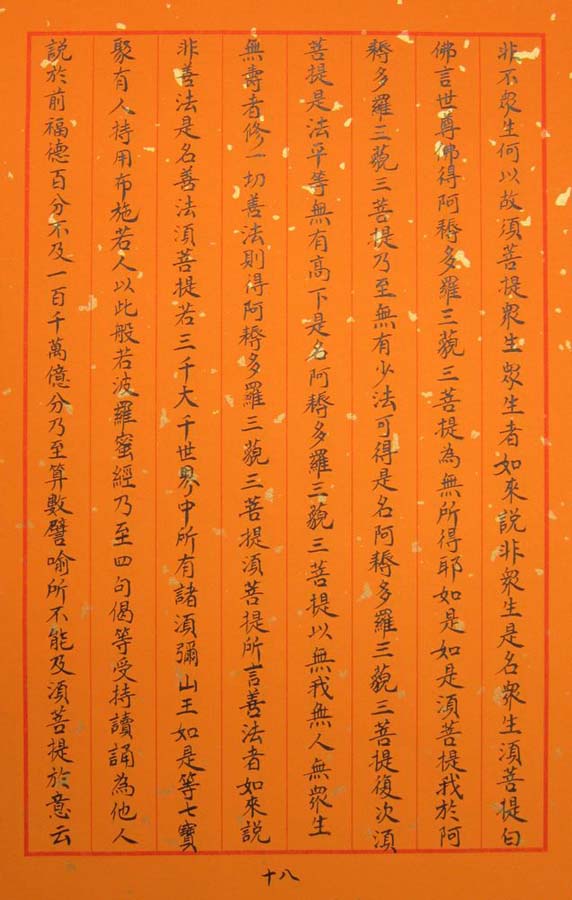 非不眾生何以故須菩提眾生眾生者如來說非眾生是名眾生須菩提白
佛言世尊佛得阿耨多羅三藐三菩提為無所得耶如是如是須菩提我於阿
耨多羅三藐三菩提乃至無有少法可得是名阿耨多羅三藐三菩提復次須
菩提是法平等無有高下是名阿耨多羅三藐三菩提以無我無人無眾生
無壽者修一切善法則得阿耨多羅三藐三菩提須菩提所言善法者如來說
非善法是名善法須菩提若三千大千世界中所有諸須彌山王如是等七寶
聚有人持用布施若人以此般若波羅蜜經乃至四句偈等受持讀誦為他人
說於前福德百分不及一百千萬億分乃至算數譬喻所不能及須菩提於意云
十八